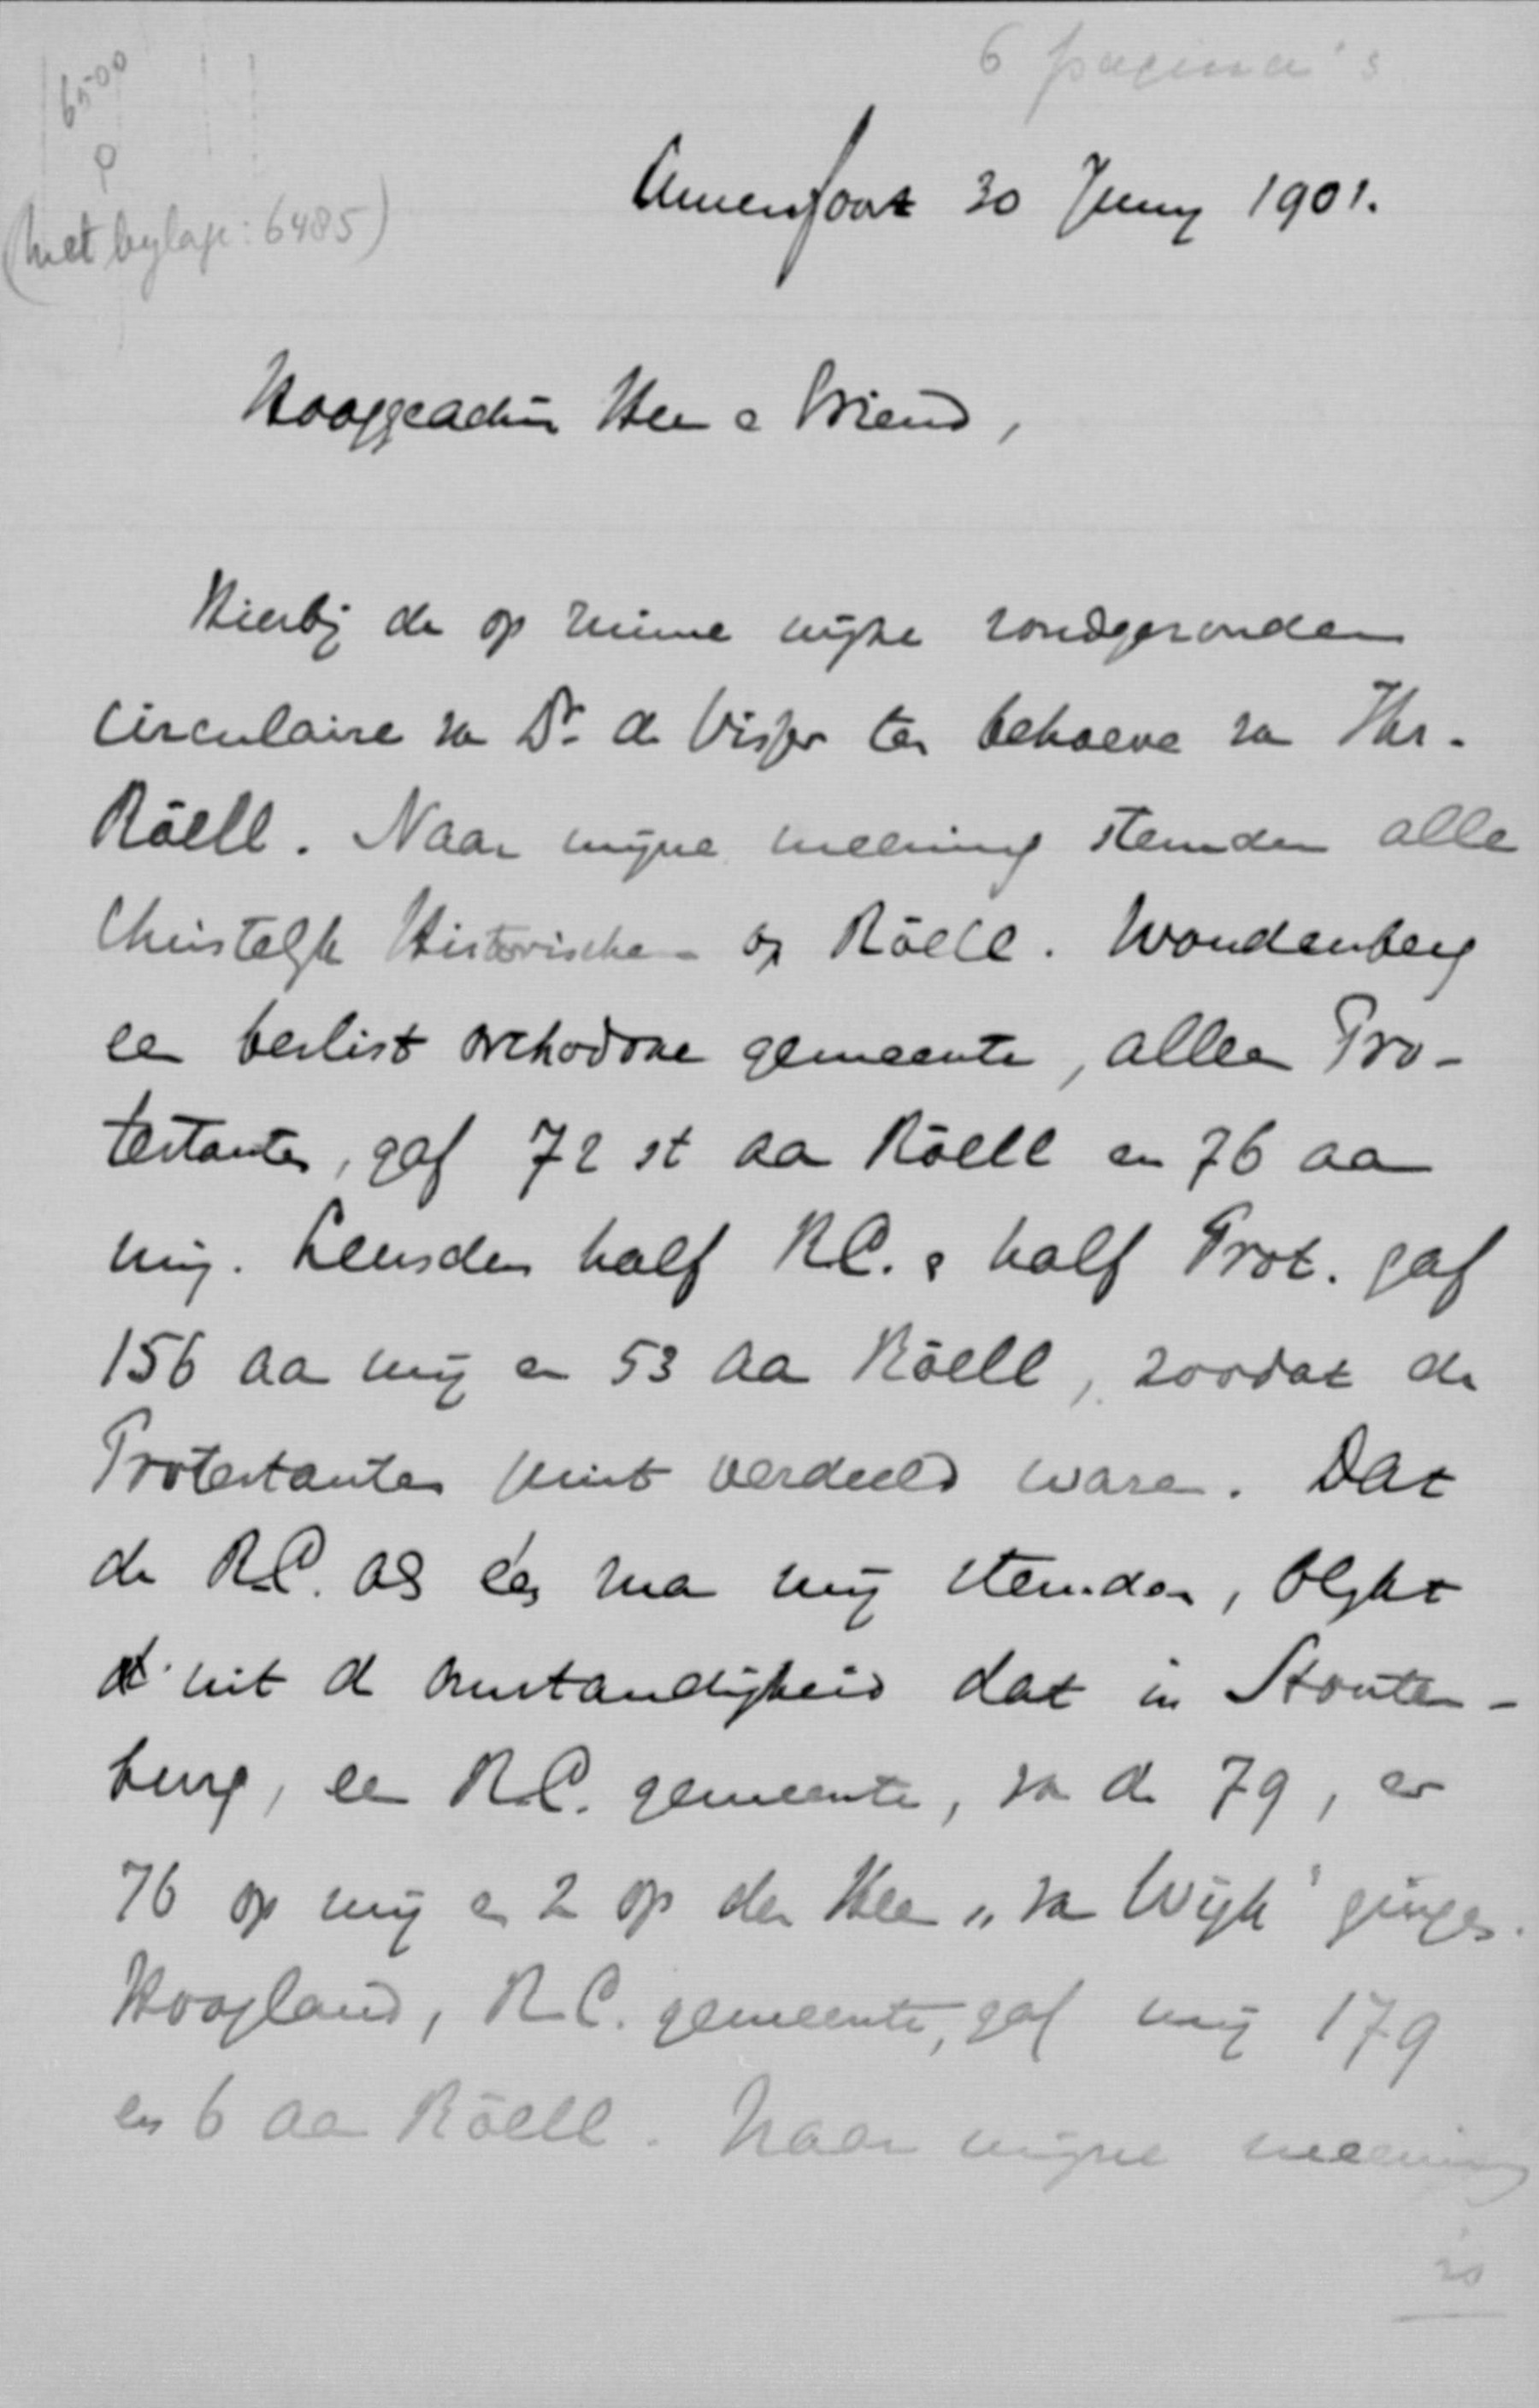 6 pagina's
6500
(met bylage: 6485)
Amersfoort 30 Juny 1901.
Hooggeachte Heer e Vriend,
Hierbij de op ruime wijze rondgezonden
circulaire va Dr. de Visser ten behoeve va Jhr.
Röell. Naar mijne meening stemden alle
Christelijk Historischen op Röell. Woudenberg
een beslist orthodoxe gemeente, allen Pro-
testanten, gaf 72 st aa Röell en 76 aa
mij. Leusden half R.C. e half Prot. gaf
156 aa mij en 53 aa Röell, zoodat de
Protestanten juist verdeeld waren. Dat
de R.C. als één man mij stemden, blijkt
uit de omstandigheid dat in Stouten-
burg, een R.C. gemeente, va de 79, er
76 op mij en 2 op den Heer „va Wijk" gingen.
Hoogland, R.C. gemeente, gaf mij 179
en 6 aa Röell. Naar mijne meening
is